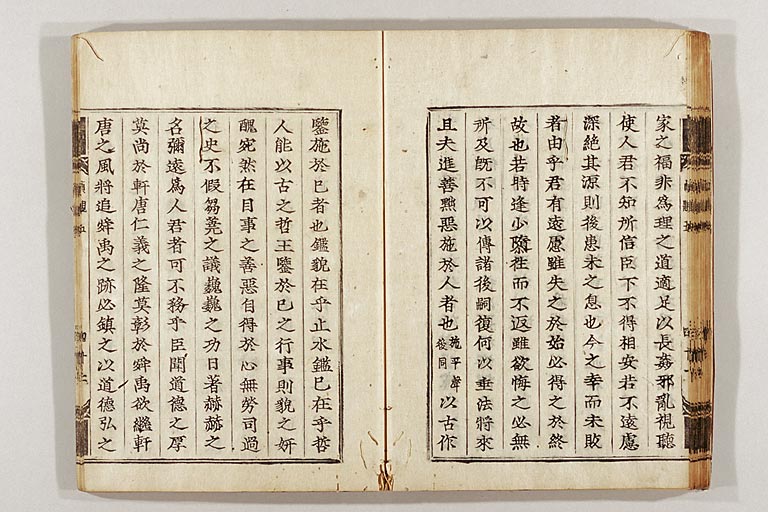 家之福非為理之道適足以長姦邪亂視聽
使人君不知所信臣下不得相安若不遠慮
深絕其源則後患未之息也今之幸而未敗
者由乎君有遠慮雖失之於始必得之於終
故也若時逢少隳往而不返雖欲悔之必無
所及既不可以傳諸後嗣復何以垂法將來
且夫進善黜惡施於人者也施平聲後同以古作
鑒施於已者也鑑貌在乎止水鑑已在乎哲
人能以古之哲王鑒於已之行事則貌之妍
醜宛然在目事之善惡自得於心無勞司過
之史不假芻蕘之議巍巍之功日著赫赫之
名彌遠為人君者可不務乎臣聞道德之厚
莫尚於軒唐仁義之隆莫彰於舜禹欲繼軒
唐之風將追舜禹之跡必鎮之以道德弘之